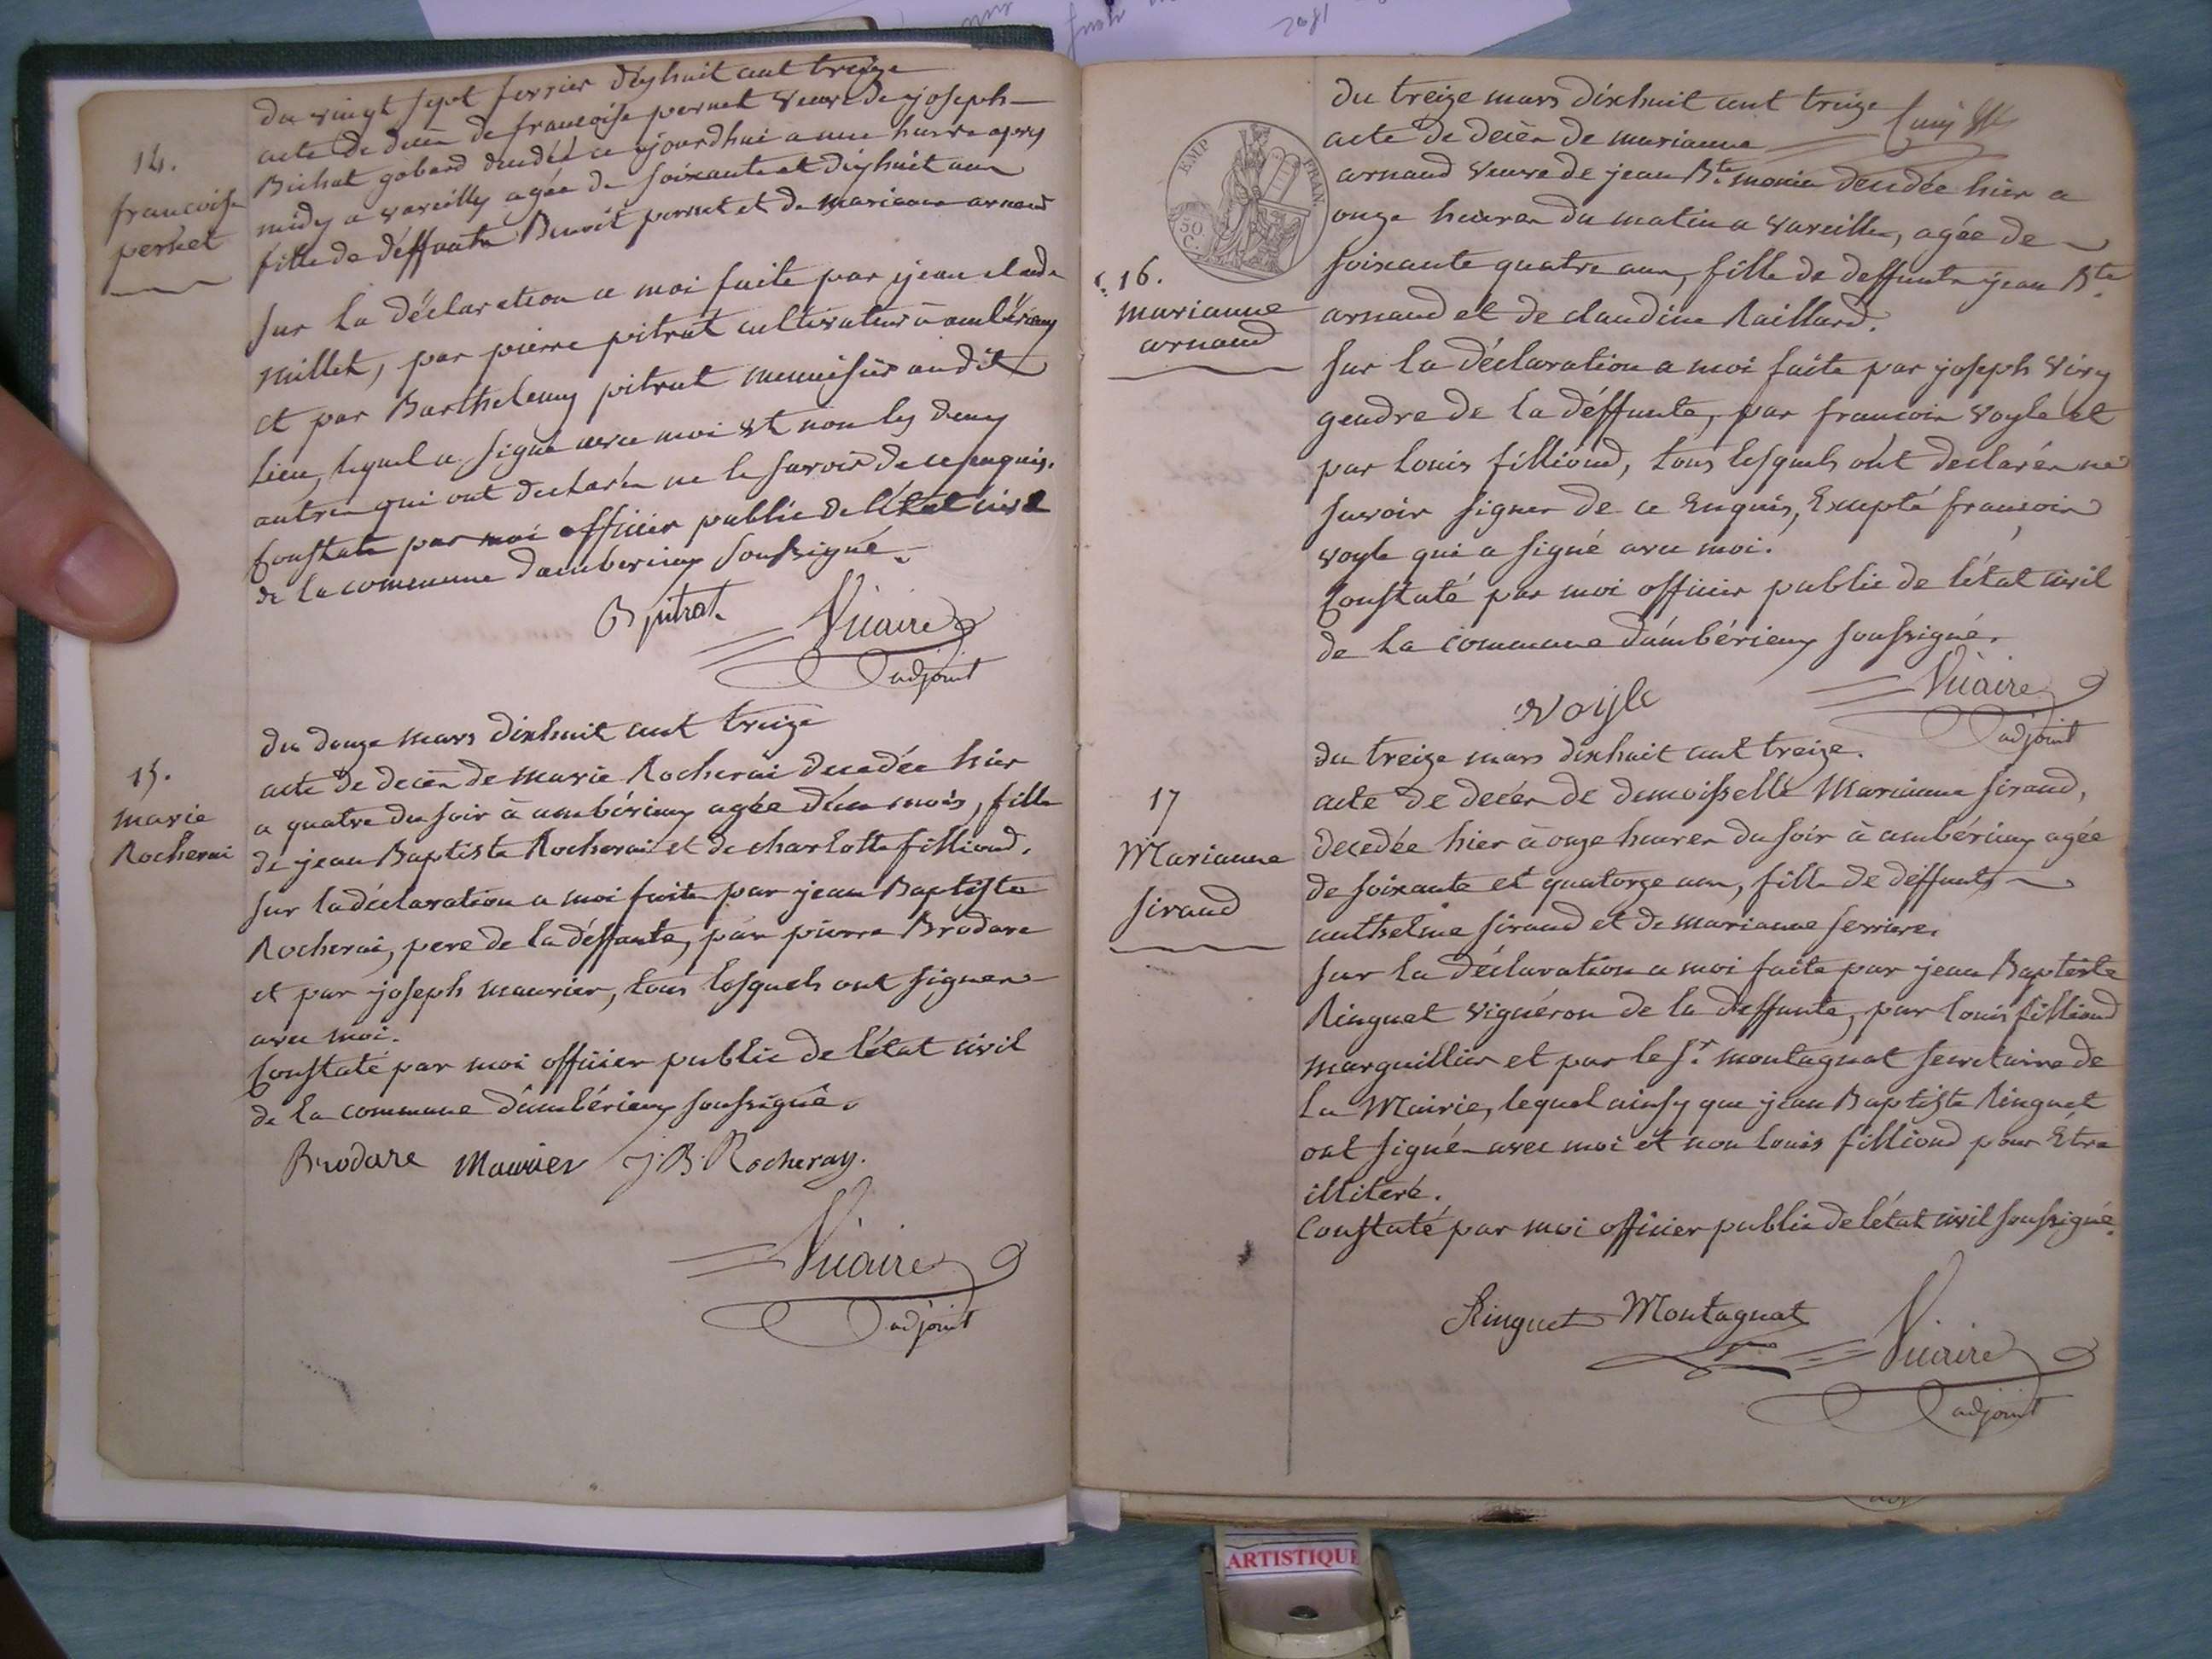 14.
francoise
pernet
du vingt sept fevrier dixhuit cent treize
acte de decèn de francoise pernet veuve de joseph
Bichat gobard decedée ce jourdhui a une heure apres
midy a vareilly agée de soixante et dixhuit ans
fille de deffunts Benoit pernet et de marianne arnaud
sur la déclaration a moi faite par jean claude
millet, par pierre pitrat cultivateur à ambérieux
et par Barthelemy pitrat menuisier audit
lieu, lequel a signé avec moi et non les deux
autres qui ont declarés ne le savoir de ce enquis.
Constaté par moi officier public de l'état civil
de la commune dambérieux soussigné.
B pitrat
Vicaire
adjoint
15.
marie
Rocherai
du douze mars dixhuit cent treize
acte de decèn de marie Rocherai decedée hier
a quatre du soir à ambérieux agée d'un mois, fille
de jean Baptiste Rocherai et de charlotte filliond.
sur la déclaration a moi faite par jean Baptiste
Rocherai, pere de la déffunte, par pierre Brodare
et par joseph maurier, tous lesquels ont signer
avec moi.
Constaté par moi officier public de l'état civil
de la commune d'ambérieux soussigné.
Brodare Maurier J. B. Rocheray.
Vicaire
adjoint
EMP FRAN.
50 C.
16.
marianne
arnaud
du treize mars dixhuit cent treize
acte de decèn de marianne
arnaud veuve de jean Bte monin decedée hier a
onze heures du matin a vareilles, agée de
soixante quatre ans, fille de deffunts jean Bte
arnaud et de claudine Raillard.
sur la déclaration a moi faite par joseph viry
gendre de la déffunte, par francois voyle et
par louis filliond, tous lesquels ont declarés ne
savoir signer de ce Enquis, Excepté francois
voyle qui a signé avec moi.
Constaté par moi officier public de l'état civil
de la commune d'ambérieux soussigné.
Voyle
Vicaire
adjoint
17
Marianne
sirand
du treize mars dixhuit cent treize.
acte de decèn de demoisselle Marianne sirand,
decedée hier à onze heures du soir à ambérieux agée
de soixante et quatorze ans, fille de déffunts
anthelme sirand et de marianne ferriere.
sur la déclaration a moi faite par jean Baptiste
Ringuet vigneron de la deffunte, par louis filliond
marguillier et par le Sr. montagnat secretaire de
la Mairie, lequel ainsy que jean Baptiste Ringuet
ont signé avec moi et non louis filliond pour Etre
illiteré.
Constaté par moi officier public de l'état civil soussigné.
Ringuet Montagnat
Vicaire
adjoint
ARTISTIQUE